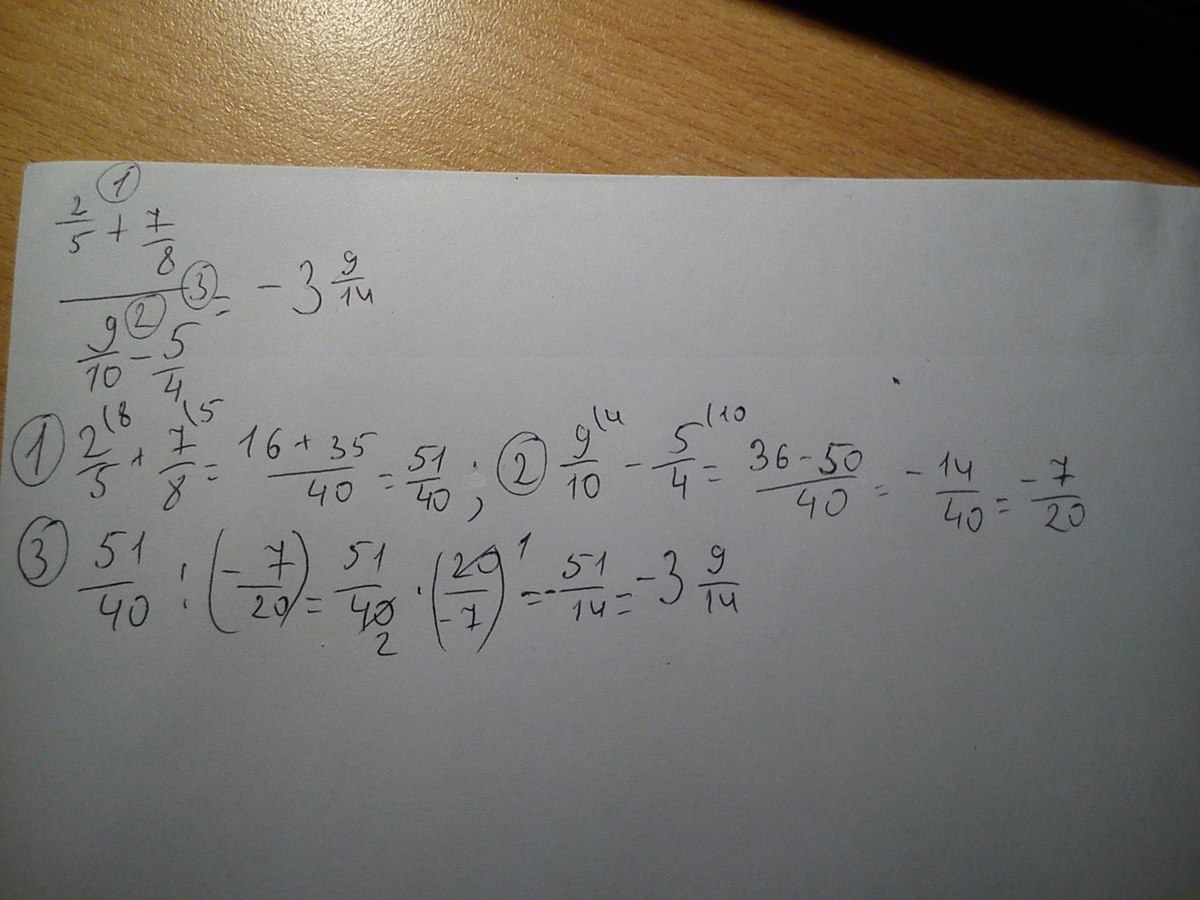 ① 2/5 + 7/8
③ = -3 9/14
9/10 ② - 5/4
① 2/5 (8 + 7/8 (5 = 16+35/40 = 51/40 ; ② 9/10 (4 - 5/4 (10 = 36-50/40 = -14/40 = -7/20
③ 51/40 : (-7/20) = 51/40 2 · (20/-7) 1 = -51/14 = -3 9/14